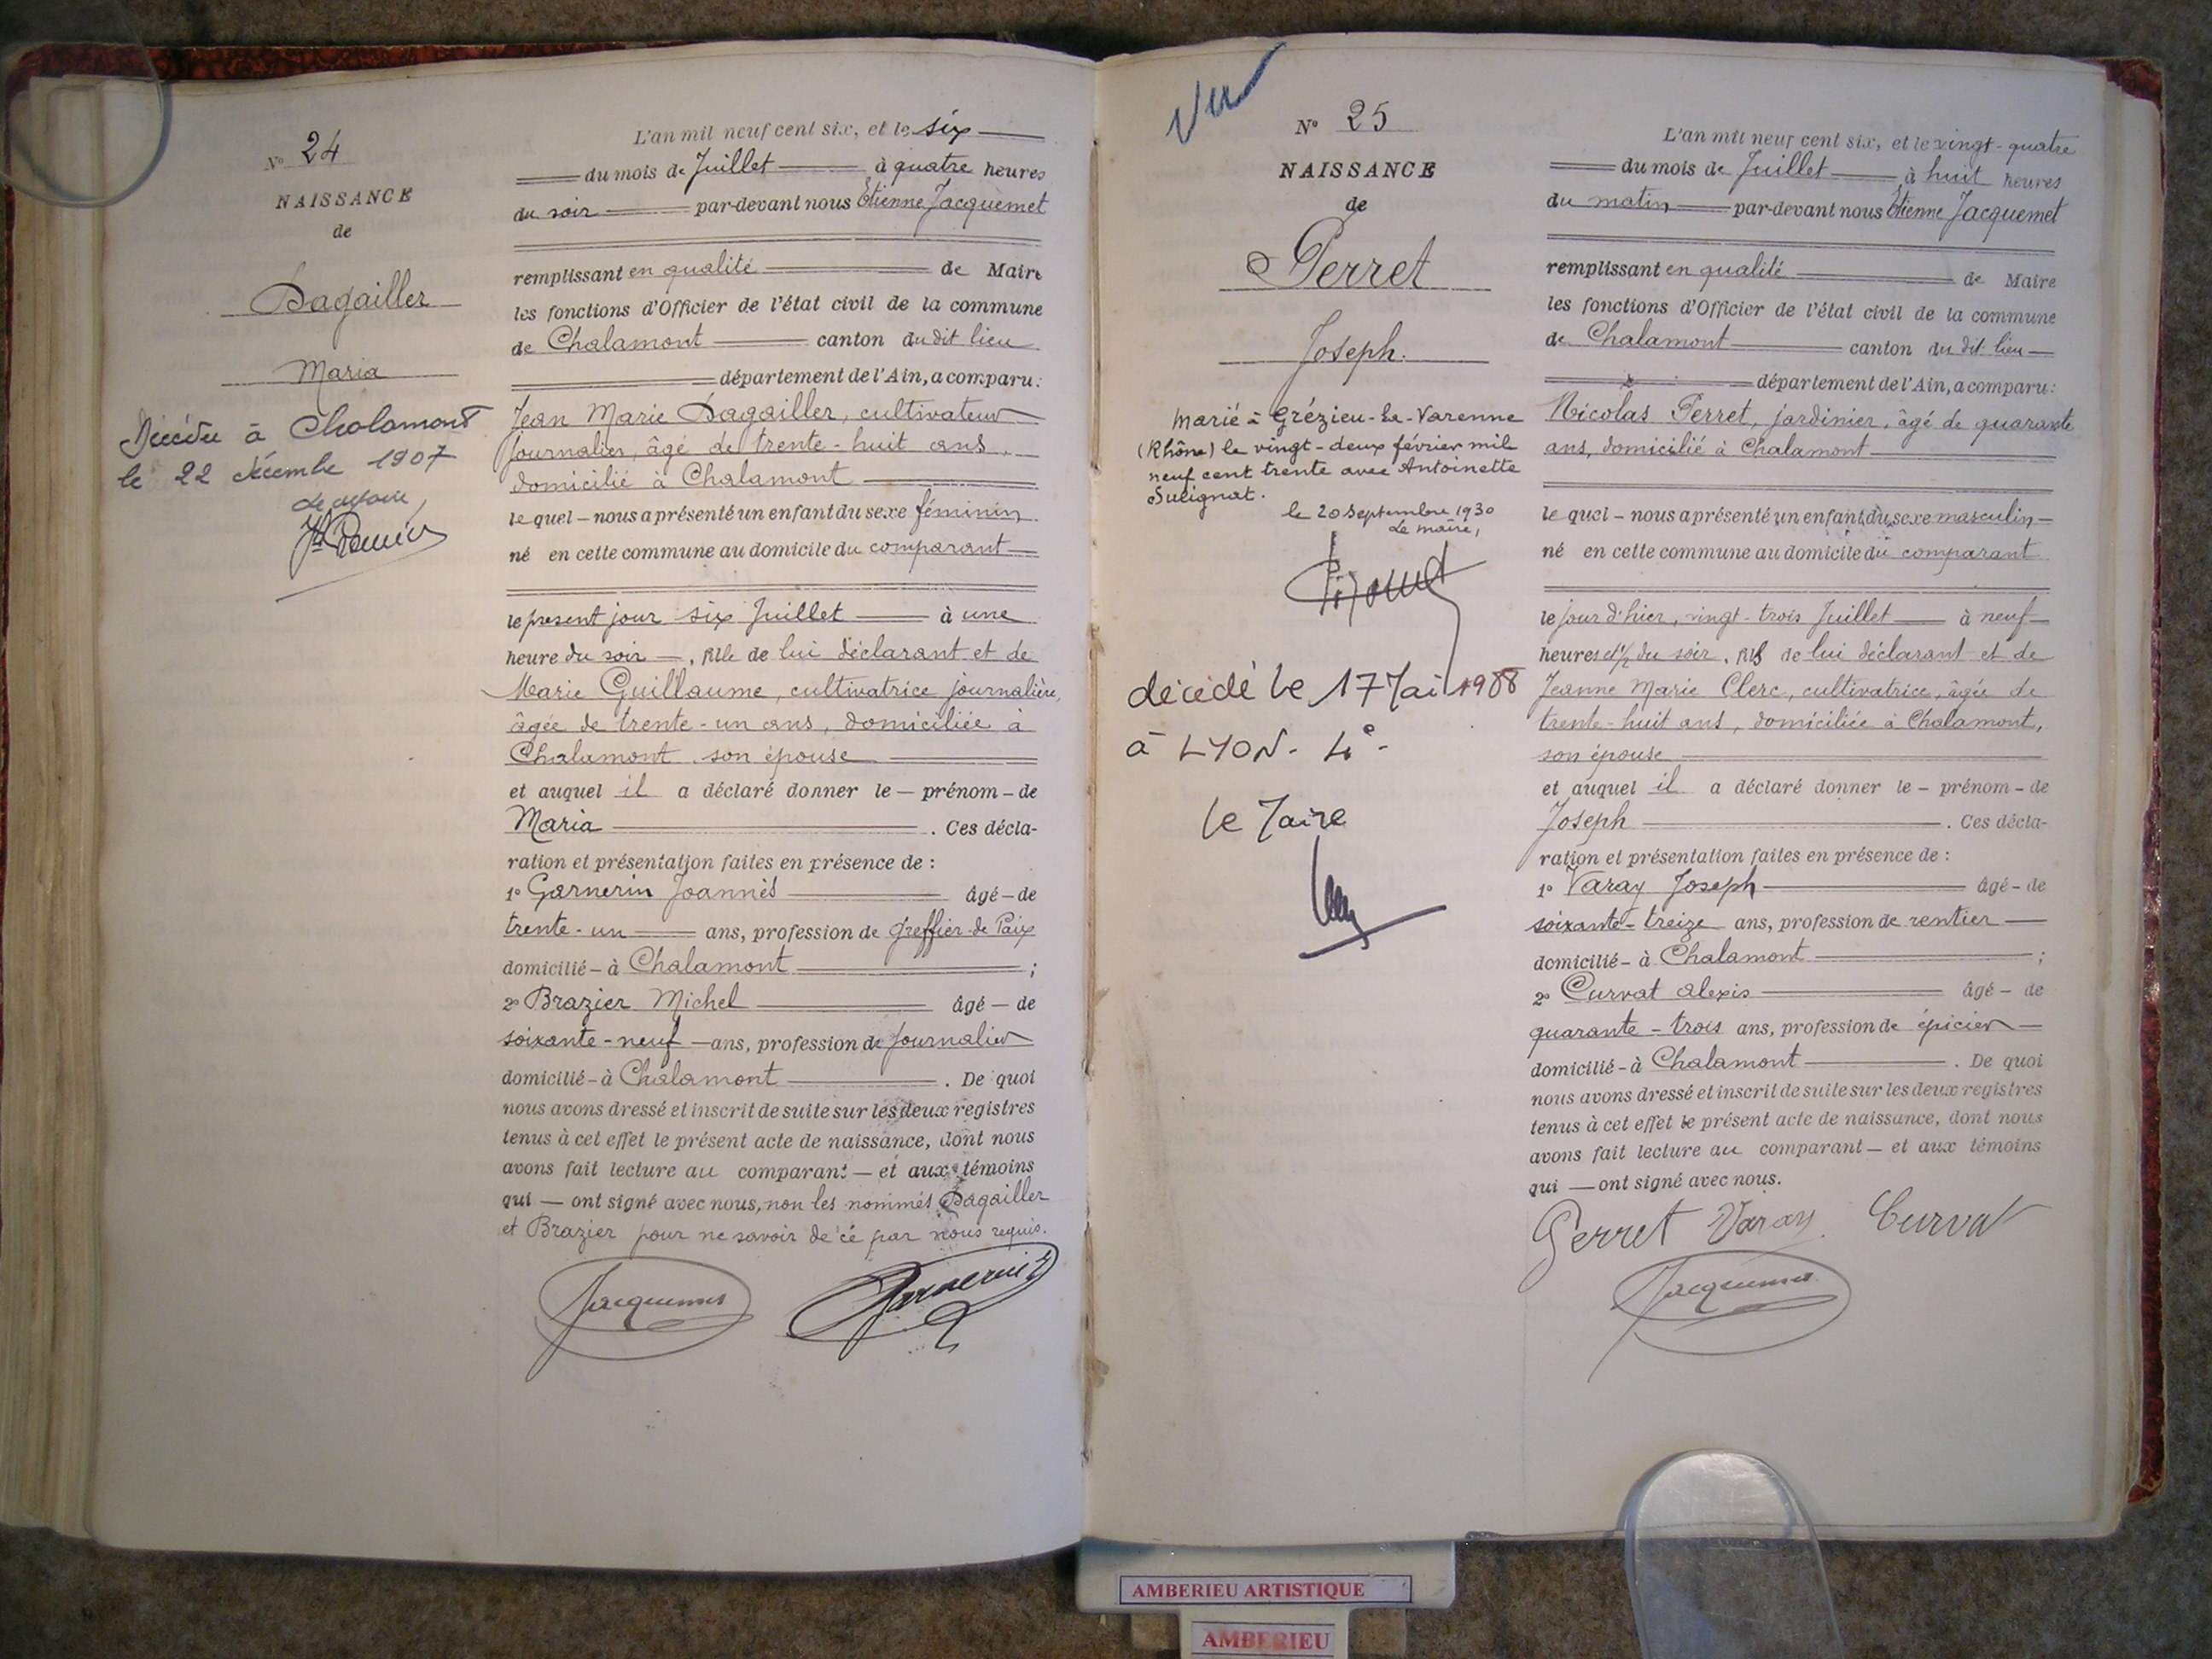 N° 24
NAISSANCE
de
Dagailler
Maria
Décédée à Chalamont
le 22 décembre 1907
Le maire,
L'an mil neuf cent six, et le six
du mois de Juillet à quatre heures
du soir par-devant nous Etienne Jacquemet
remplissant en qualité de Maire
les fonctions d'Officier de l'état civil de la commune
de Chalamont canton du dit lieu
département de l'Ain, a comparu:
Jean Marie Dagailler, cultivateur
journalier, âgé de trente-huit ans
domicilié à Chalamont
lequel – nous a présenté un enfant du sexe féminin
né en cette commune au domicile du comparant
le présent jour six Juillet à une
heure du soir, fille de lui déclarant et de
Marie Guillaume, cultivatrice journalière,
âgée de trente-un ans, domiciliée à
Chalamont son épouse
et auquel il a déclaré donner le – prénom – de
Maria . Ces décla-
ration et présentation faites en présence de :
1° Garnerin Joannès âgé – de
trente-un ans, profession de greffier de Paix
domicilié – à Chalamont ;
2° Brazier Michel âgé – de
soixante-neuf – ans, profession de journalier
domicilié – à Chalamont . De quoi
nous avons dressé et inscrit de suite sur les deux registres
tenus à cet effet le présent acte de naissance, dont nous
avons fait lecture au comparant – et aux témoins
qui – ont signé avec nous, non les nommés Dagailler
et Brazier pour ne savoir de ce par nous requis.
Jacquemet Garnerin
Vu
N° 25
NAISSANCE
de
Perret
Joseph.
Marié à Grézieu-la-Varenne
(Rhône) le vingt-deux février mil
neuf cent trente avec Antoinette
Sulignat.
le 20 Septembre 1930
Le maire,
décédé le 17 Mai 1988
à LYON - 4°-
le Maire
L'an mil neuf cent six, et le vingt-quatre
du mois de Juillet à huit heures
du matin par-devant nous Etienne Jacquemet
remplissant en qualité de Maire
les fonctions d'Officier de l'état civil de la commune
de Chalamont canton du dit lieu
département de l'Ain, a comparu:
Nicolas Perret, jardinier, âgé de quarante
ans, domicilié à Chalamont
lequel – nous a présenté un enfant du sexe masculin
né en cette commune au domicile du comparant
le jour d'hier, vingt-trois Juillet à neuf
heures et ½ du soir, fils de lui déclarant et de
Jeanne Marie Clerc, cultivatrice, âgée de
trente-huit ans, domiciliée à Chalamont,
son épouse
et auquel il a déclaré donner le – prénom – de
Joseph . Ces décla-
ration et présentation faites en présence de :
1° Varay Joseph âgé – de
soixante-treize ans, profession de rentier
domicilié – à Chalamont ;
2° Curvat Alexis âgé – de
quarante-trois ans, profession de épicier
domicilié – à Chalamont . De quoi
nous avons dressé et inscrit de suite sur les deux registres
tenus à cet effet le présent acte de naissance, dont nous
avons fait lecture au comparant – et aux témoins
qui – ont signé avec nous.
Perret Varay Curvat
Jacquemet
AMBERIEU ARTISTIQUE
AMBERIEU